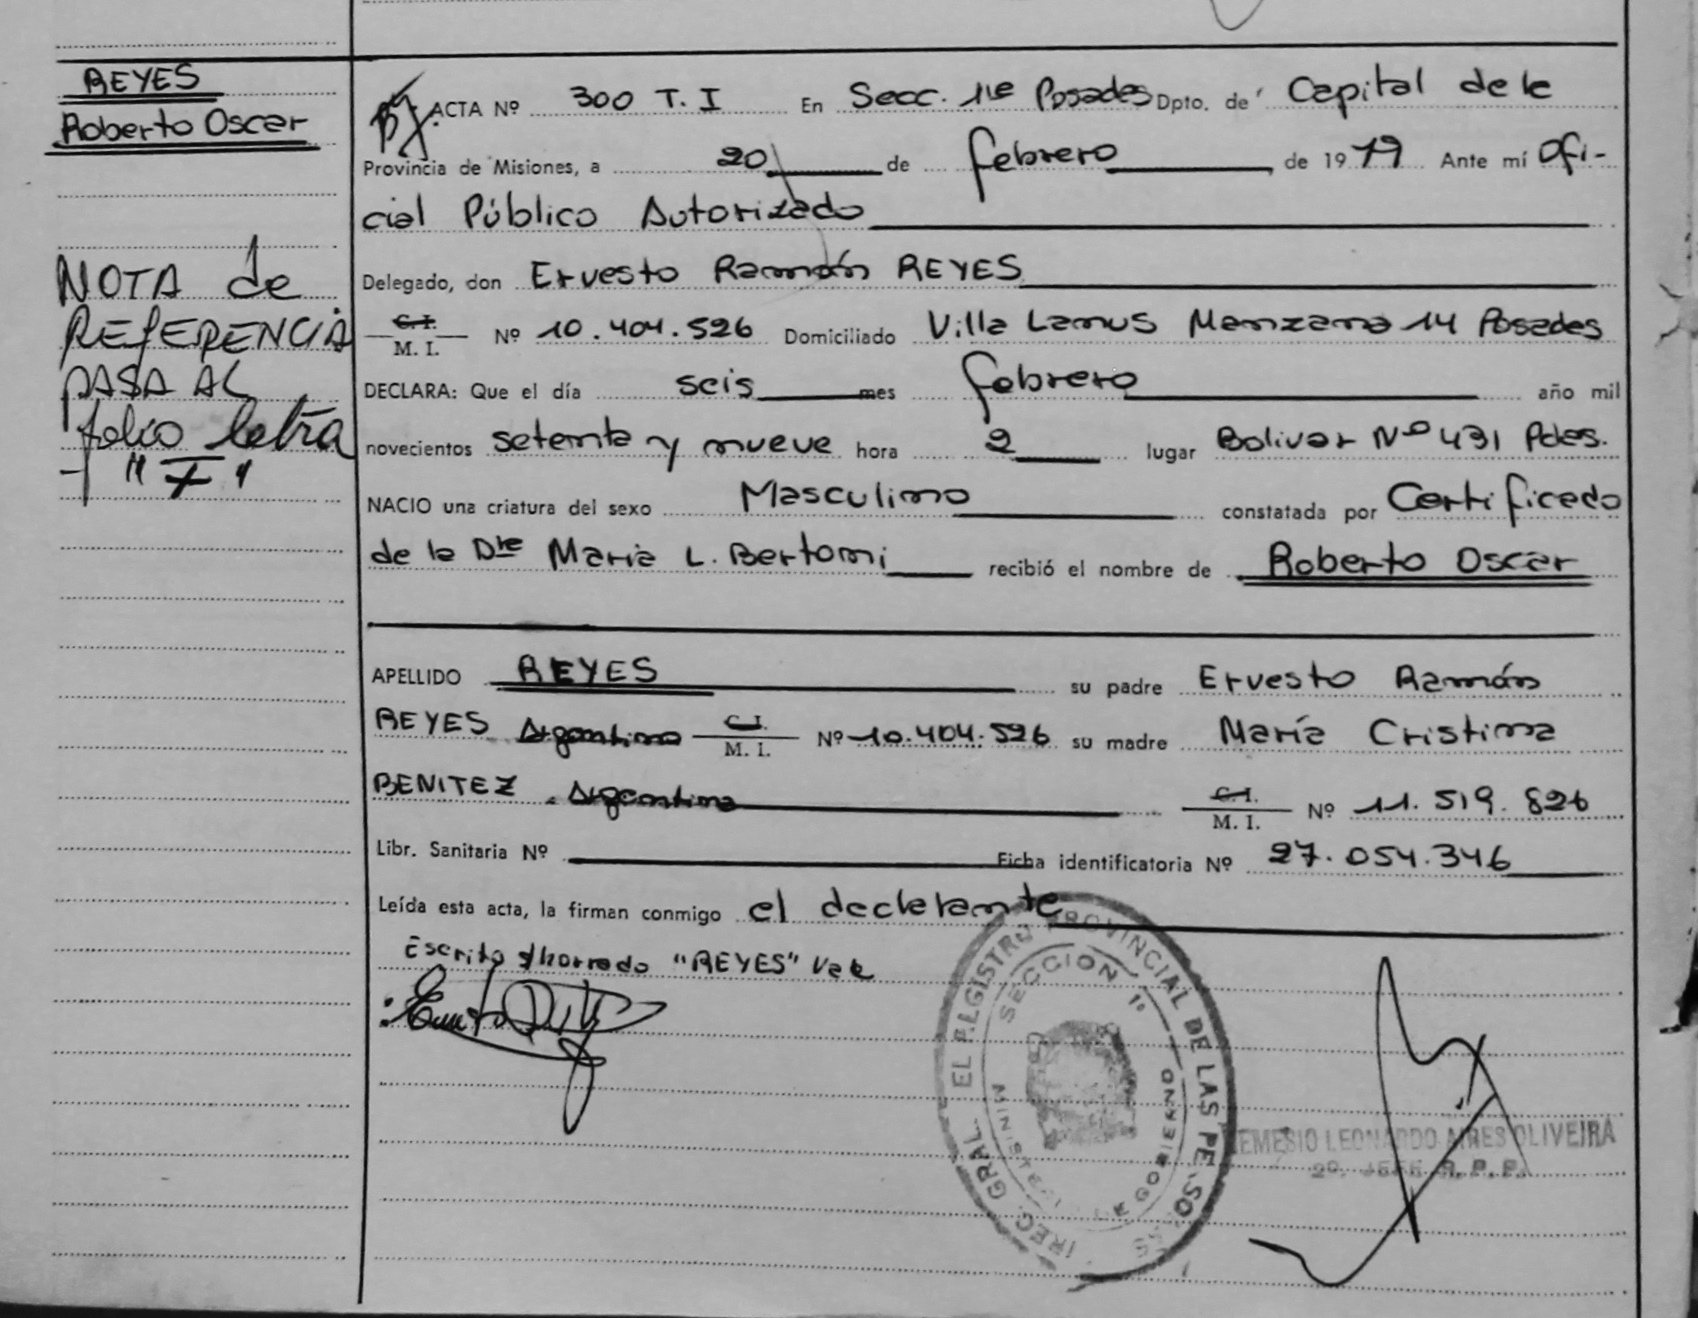 REYES
Roberto Oscar
NOTA de
REFERENCIA
PASA AL
folio letra
"I"
ACTA Nº 300 T. I En Secc. 1ra Posadas Dpto. de Capital de la
Provincia de Misiones, a 20 de febrero de 1979 Ante mí Ofi-
cial Público Autorizado
Delegado, don Ernesto Ramón REYES
C. I.
M. I. Nº 10.404.526 Domiciliado Villa Lanus Manzana 14 Posadas
DECLARA: Que el día seis mes febrero año mil
novecientos setenta y nueve hora 2 lugar Bolivar Nº 431 Pdas.
NACIO una criatura del sexo Masculino constatada por Certificado
de la Dra Maria L. Bertoni recibió el nombre de Roberto Oscar
APELLIDO REYES su padre Ernesto Ramón
REYES Argentino C. I. M. I. Nº 10.404.526 su madre María Cristina
BENITEZ Argentina C. I. M. I. Nº 11.519.826
Libr. Sanitaria Nº Ficha identificatoria Nº 27.054.346
Leída esta acta, la firman conmigo el declarante
Escrito s/borrado "REYES" Vale
REGISTRO PROVINCIAL DE LAS PE SO
SECCION 1º
GOBIERNO
EMESIO LEONARDO AIRES OLIVEIRA
2º JEFE R. P. P.